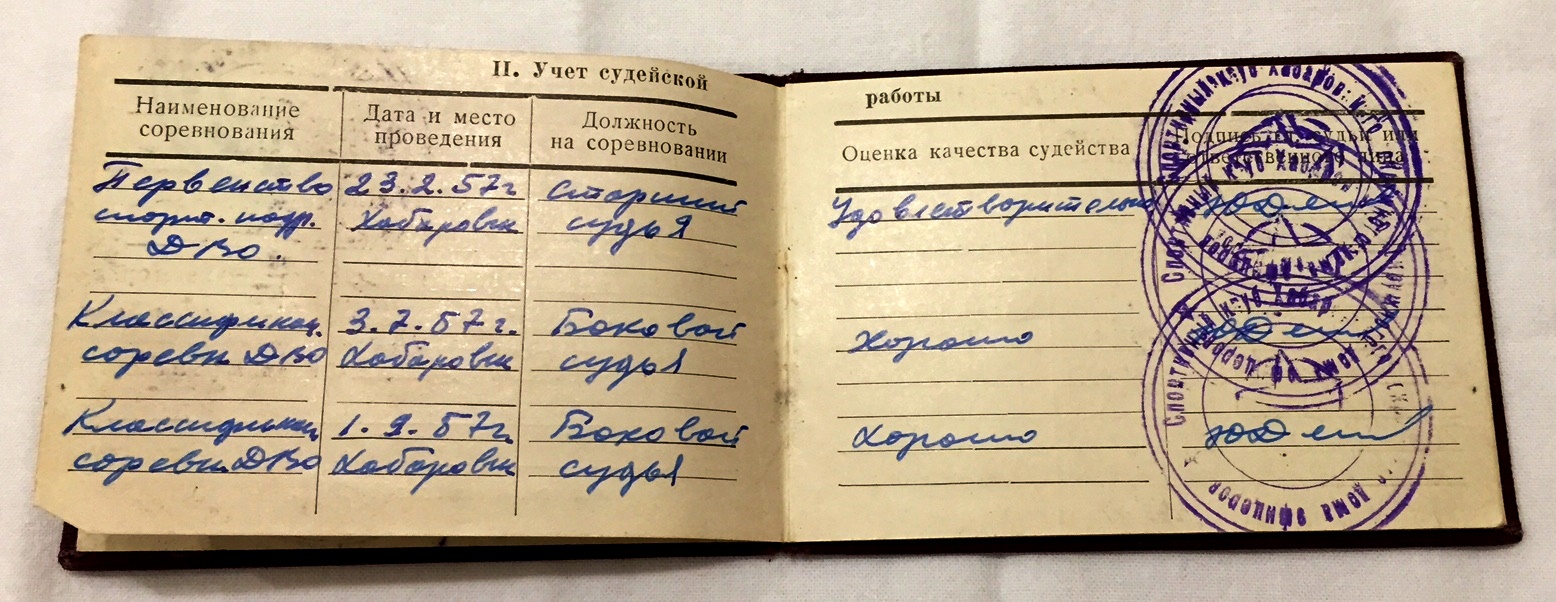 II. Учет судейской
Наименование
соревнования
Дата и место
проведения
Должность
на соревновании
Первенство
спорт. подр.
ДВО.
23.2.57г
Хабаровск
старший
судья
Классификац.
соревн ДВО
3.7.57г.
Хабаровск
Боковой
судья
Классификац
соревн. ДВО
1.9.57г.
Хабаровск
Боковой
судья
работы
Оценка качества судейства
Подпись гл. судьи или
ответственного лица
Удовлетворительно
Хорошо
Хорошо
Спортивный клуб Хабаров
Спортивный клуб Хабар
Спортивный
дома офицеров